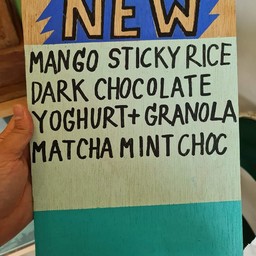 NEW
MANGO STICKY RICE
DARK CHOCOLATE
YOGHURT + GRANOLA
MATCHA MINT CHOC